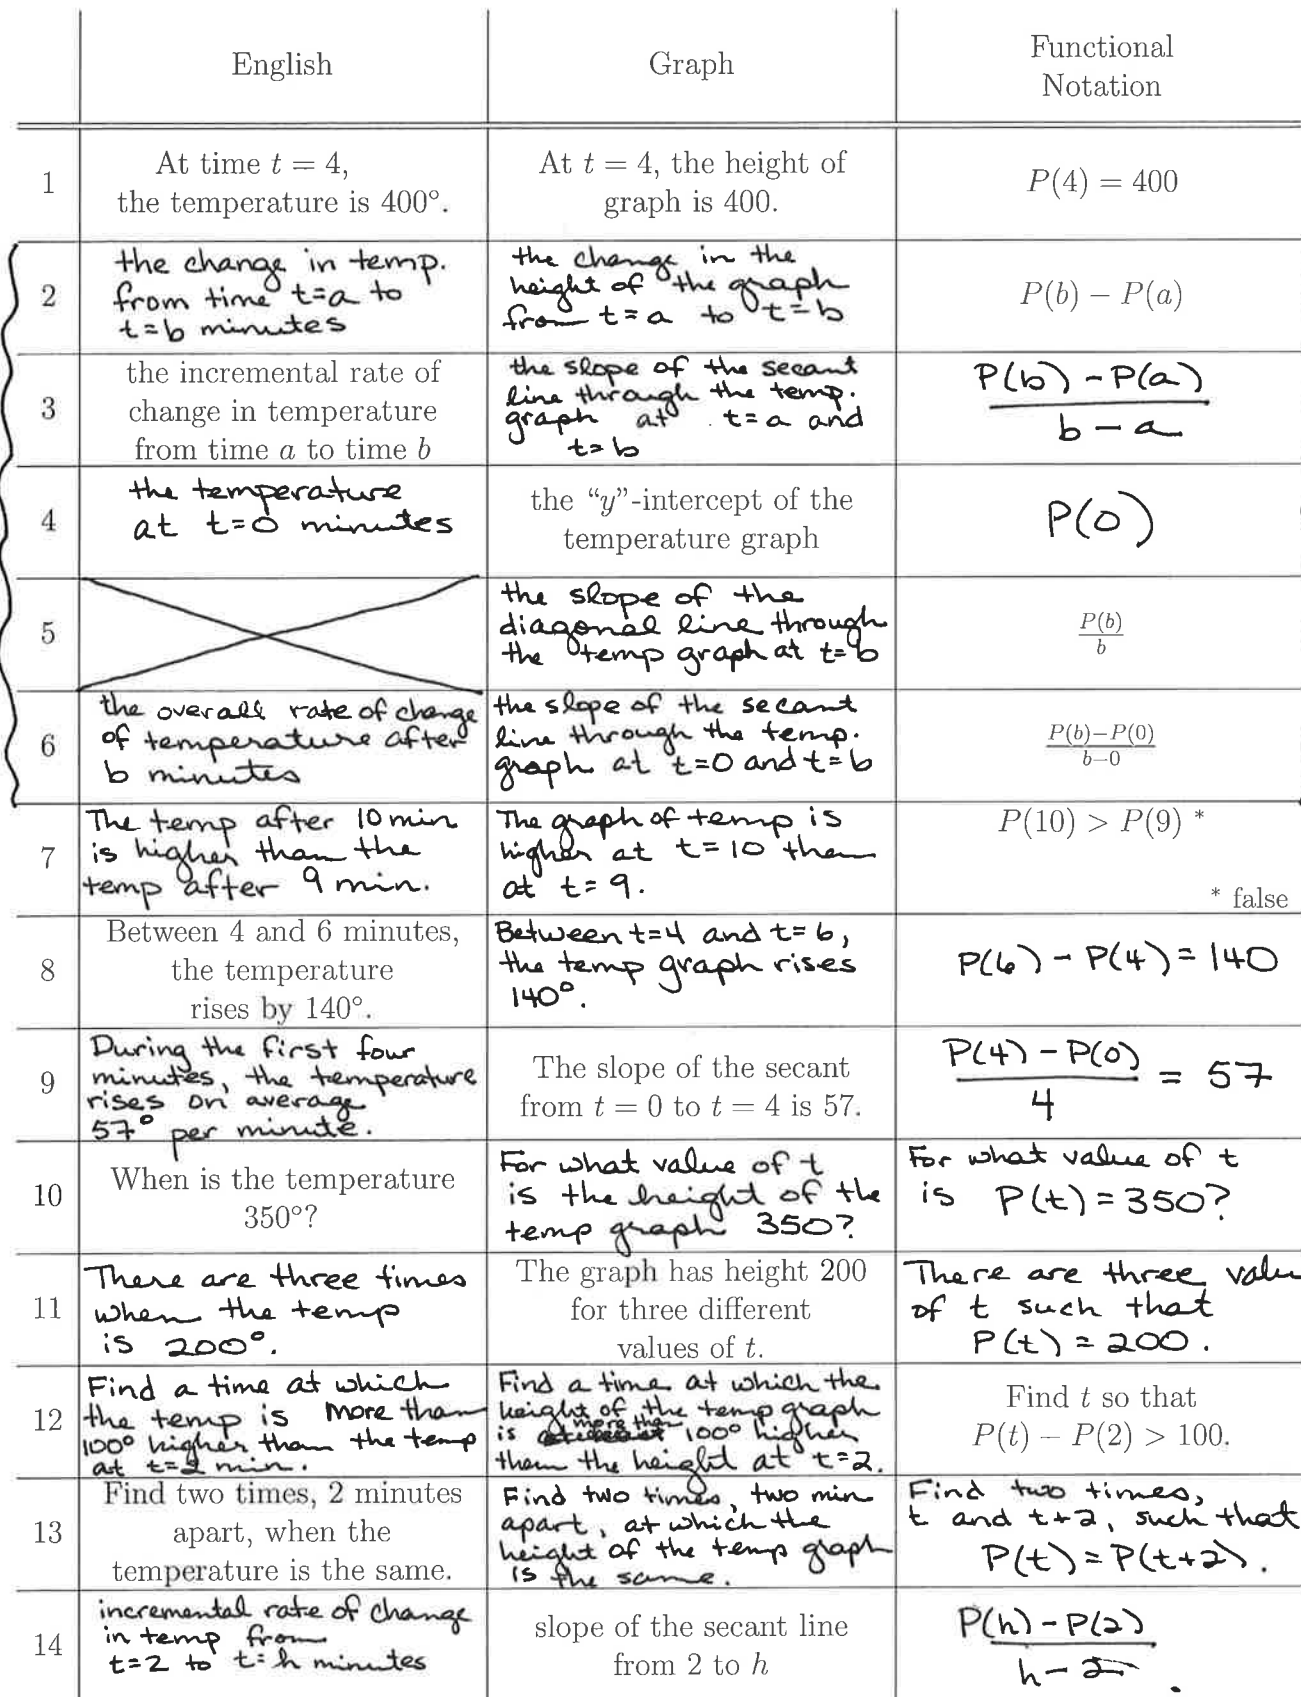 English
Graph
Functional
Notation
1
At time t = 4,
the temperature is 400°.
At t = 4, the height of
graph is 400.
P(4) = 400
2
the change in temp.
from time t=a to
t=b minutes
the change in the
height of the graph
from t=a to t=b
P(b) − P(a)
3
the incremental rate of
change in temperature
from time a to time b
the slope of the secant
line through the temp.
graph at t=a and
t=b
P(b) - P(a)
b - a
4
the temperature
at t=0 minutes
the "y"-intercept of the
temperature graph
P(0)
5
the slope of the
diagonal line through
the temp graph at t=b
P(b)
b
6
the overall rate of change
of temperature after
b minutes
the slope of the secant
line through the temp.
graph at t=0 and t=b
P(b)−P(0)
b−0
7
The temp after 10 min
is higher than the
temp after 9 min.
The graph of temp is
higher at t=10 than
at t=9.
P(10) > P(9) *
* false
8
Between 4 and 6 minutes,
the temperature
rises by 140°.
Between t=4 and t=6,
the temp graph rises
140°.
P(6) - P(4) = 140
9
During the first four
minutes, the temperature
rises on average
57° per minute.
The slope of the secant
from t = 0 to t = 4 is 57.
P(4) - P(0)
4
= 57
10
When is the temperature
350°?
For what value of t
is the height of the
temp graph 350?
For what value of t
is P(t) = 350?
11
There are three times
when the temp
is 200°.
The graph has height 200
for three different
values of t.
There are three valu
of t such that
P(t) = 200.
12
Find a time at which
the temp is more than
100° higher than the temp
at t=2 min.
Find a time at which the
height of the temp graph
is more than 100° higher
than the height at t=2.
Find t so that
P(t) − P(2) > 100.
13
Find two times, 2 minutes
apart, when the
temperature is the same.
Find two times, two min
apart, at which the
height of the temp graph
is the same.
Find two times,
t and t+2, such that
P(t) = P(t+2).
14
incremental rate of change
in temp from
t=2 to t=h minutes
slope of the secant line
from 2 to h
P(h) - P(2)
h - 2 .